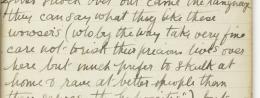 over our came the language
they can say what they like these
wowsers (who by the way take very fine
care not to risk their precious lives over
here but much prefer to skulk at
home & rave at better people than